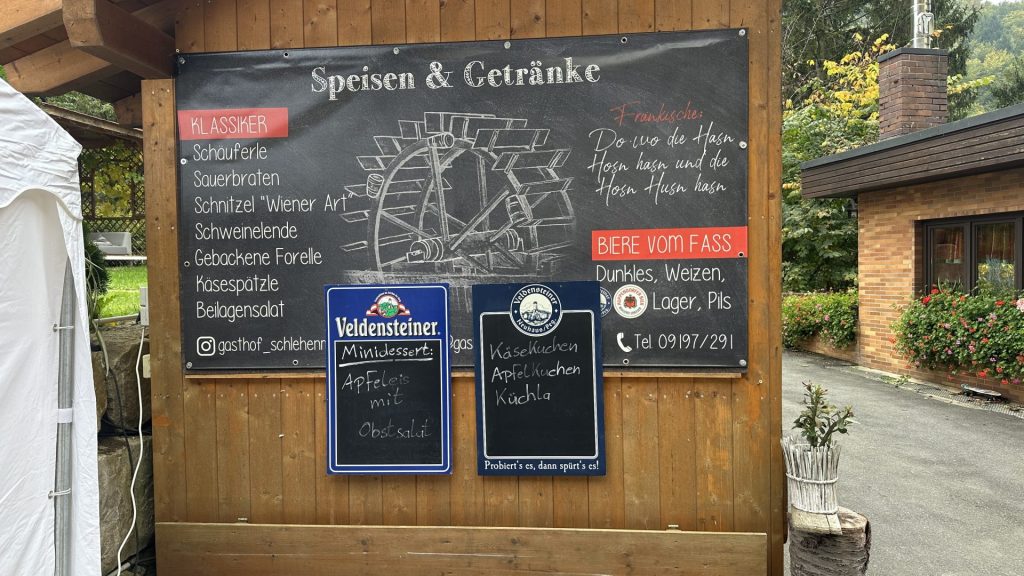 Speisen & Getränke
KLASSIKER
Schäuferle
Sauerbraten
Schnitzel "Wiener Art"
Schweinelende
Gebackene Forelle
Käsespätzle
Beilagensalat
gasthof_schlehenm
Fränkische:
Do wo die Hasn
Hosn hasn und die
Hosn Husn hasn
BIERE VOM FASS
Dunkles, Weizen,
Lager, Pils
Tel 09197/291
Veldensteiner
Minidessert:
Apfeleis
mit
Obstsalat
Veldensteiner
Neuhaus/Peg.
Käsekuchen
Apfelkuchen
Küchla
Probiert's es, dann spürt's es!